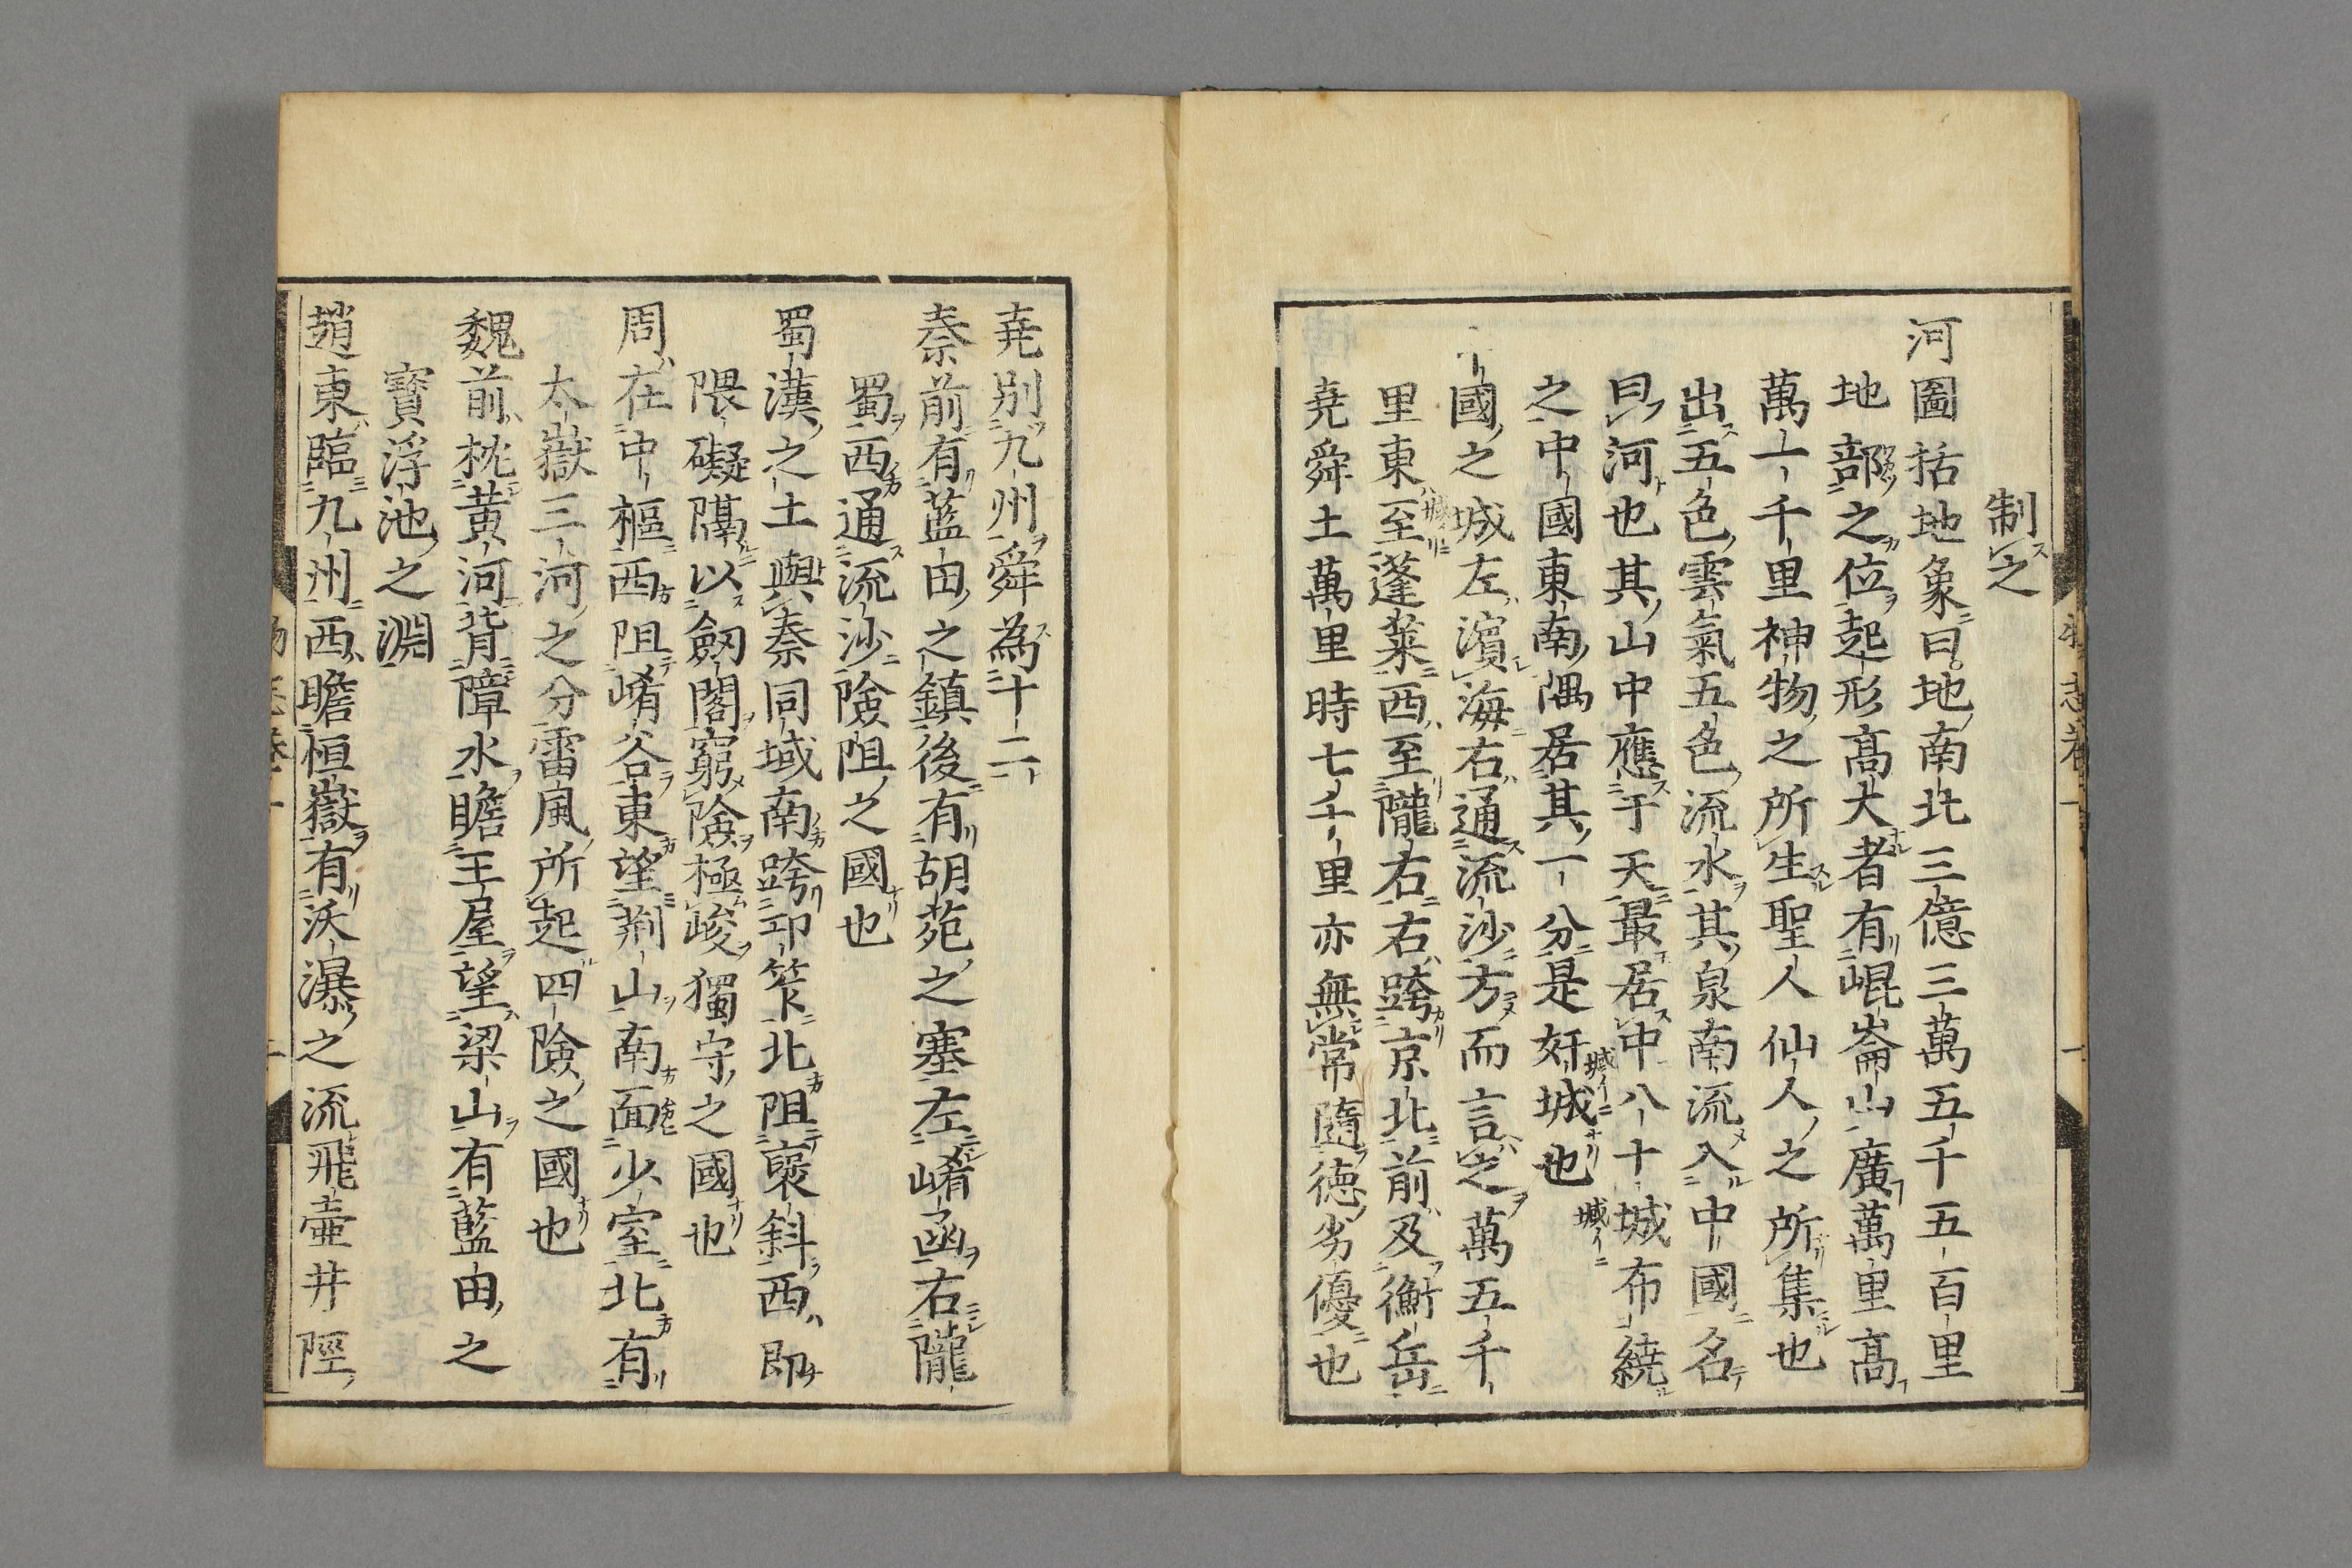 制之
河圖括地象曰地南北三億三萬五千五百里
地部之位起形高大者有崐崙山廣萬里高
萬一千里神物之所生聖人仙人之所集也
出五色雲氣五色流水其泉南流入中國名
曰河也其山中應于天最居中八十城布繞
之中國東南隅居其一分是奸城也
國之城左濱海右通流沙方而言之萬五千
里東至蓬萊西至隴右右跨京北前及衡岳
堯舜土萬里時七千里亦無常隨德劣優也
堯別九州舜為十二
秦前有藍田之鎮後有胡苑之塞左崤函右隴
蜀西通流沙險阻之國也
蜀漢之土與秦同域南跨邛筰北阻襃斜西即
隈礙隔以劔閣窮險極峻獨守之國也
周在中樞西阻崤谷東望荆山南面少室北有
太嶽三河之分雷風所起四險之國也
魏前枕黄河背障水瞻王屋望梁山有藍田之
寳浮池之淵
趙東臨九州西瞻恒嶽有沃瀑之流飛壷井陘